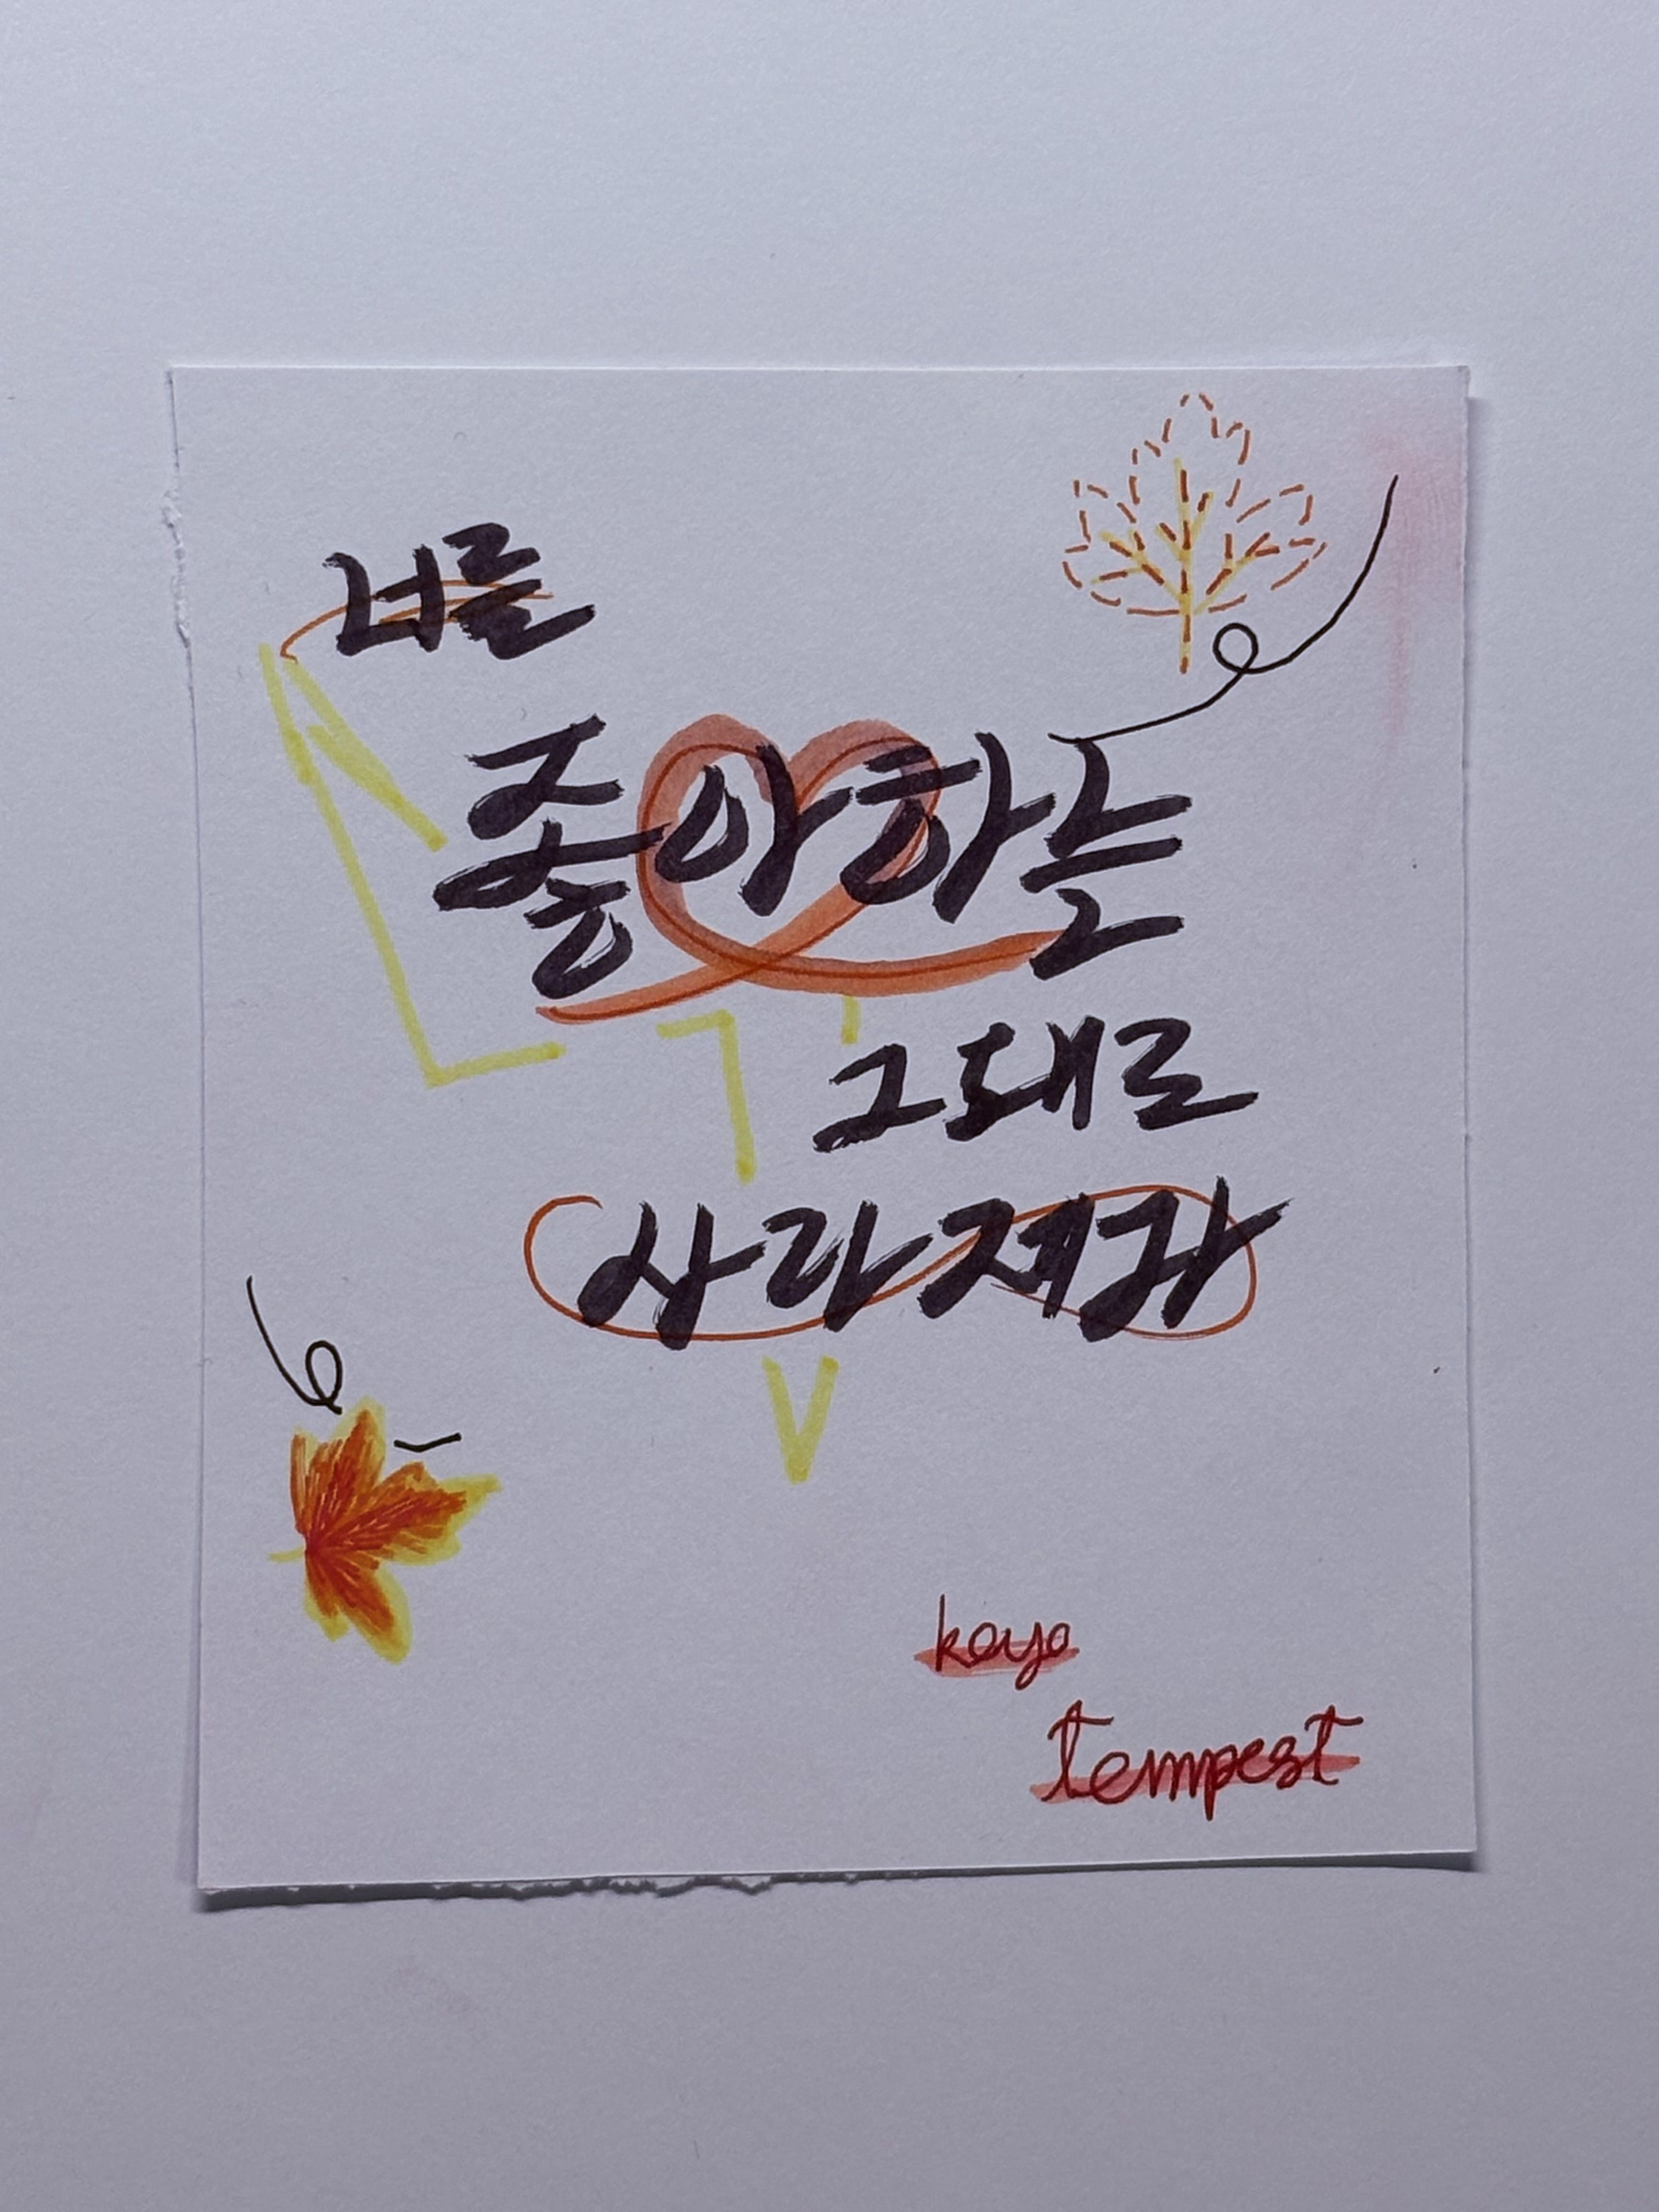 너를
좋아하는
그대로
사라져가
koyo
tempest